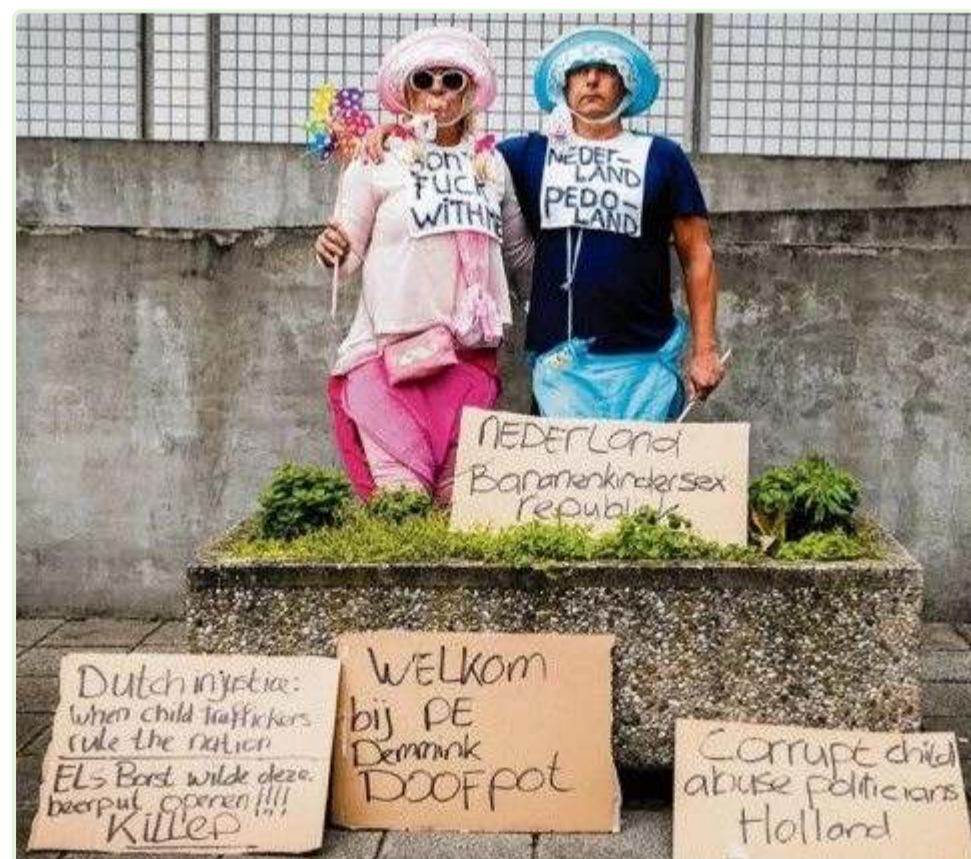 DON'T
FUCK
WITH ME
NEDER-
LAND
PEDO-
LAND
NEDERLAND
Bananenkindersex
republiek
Dutch injustice:
when child traffickers
rule the nation
ELS Borst wilde deze
beerput openen!!!!
KILLED
WELKOM
bij DE
Demmink
DOOFPOT
Corrupt child
abuse politicians
Holland